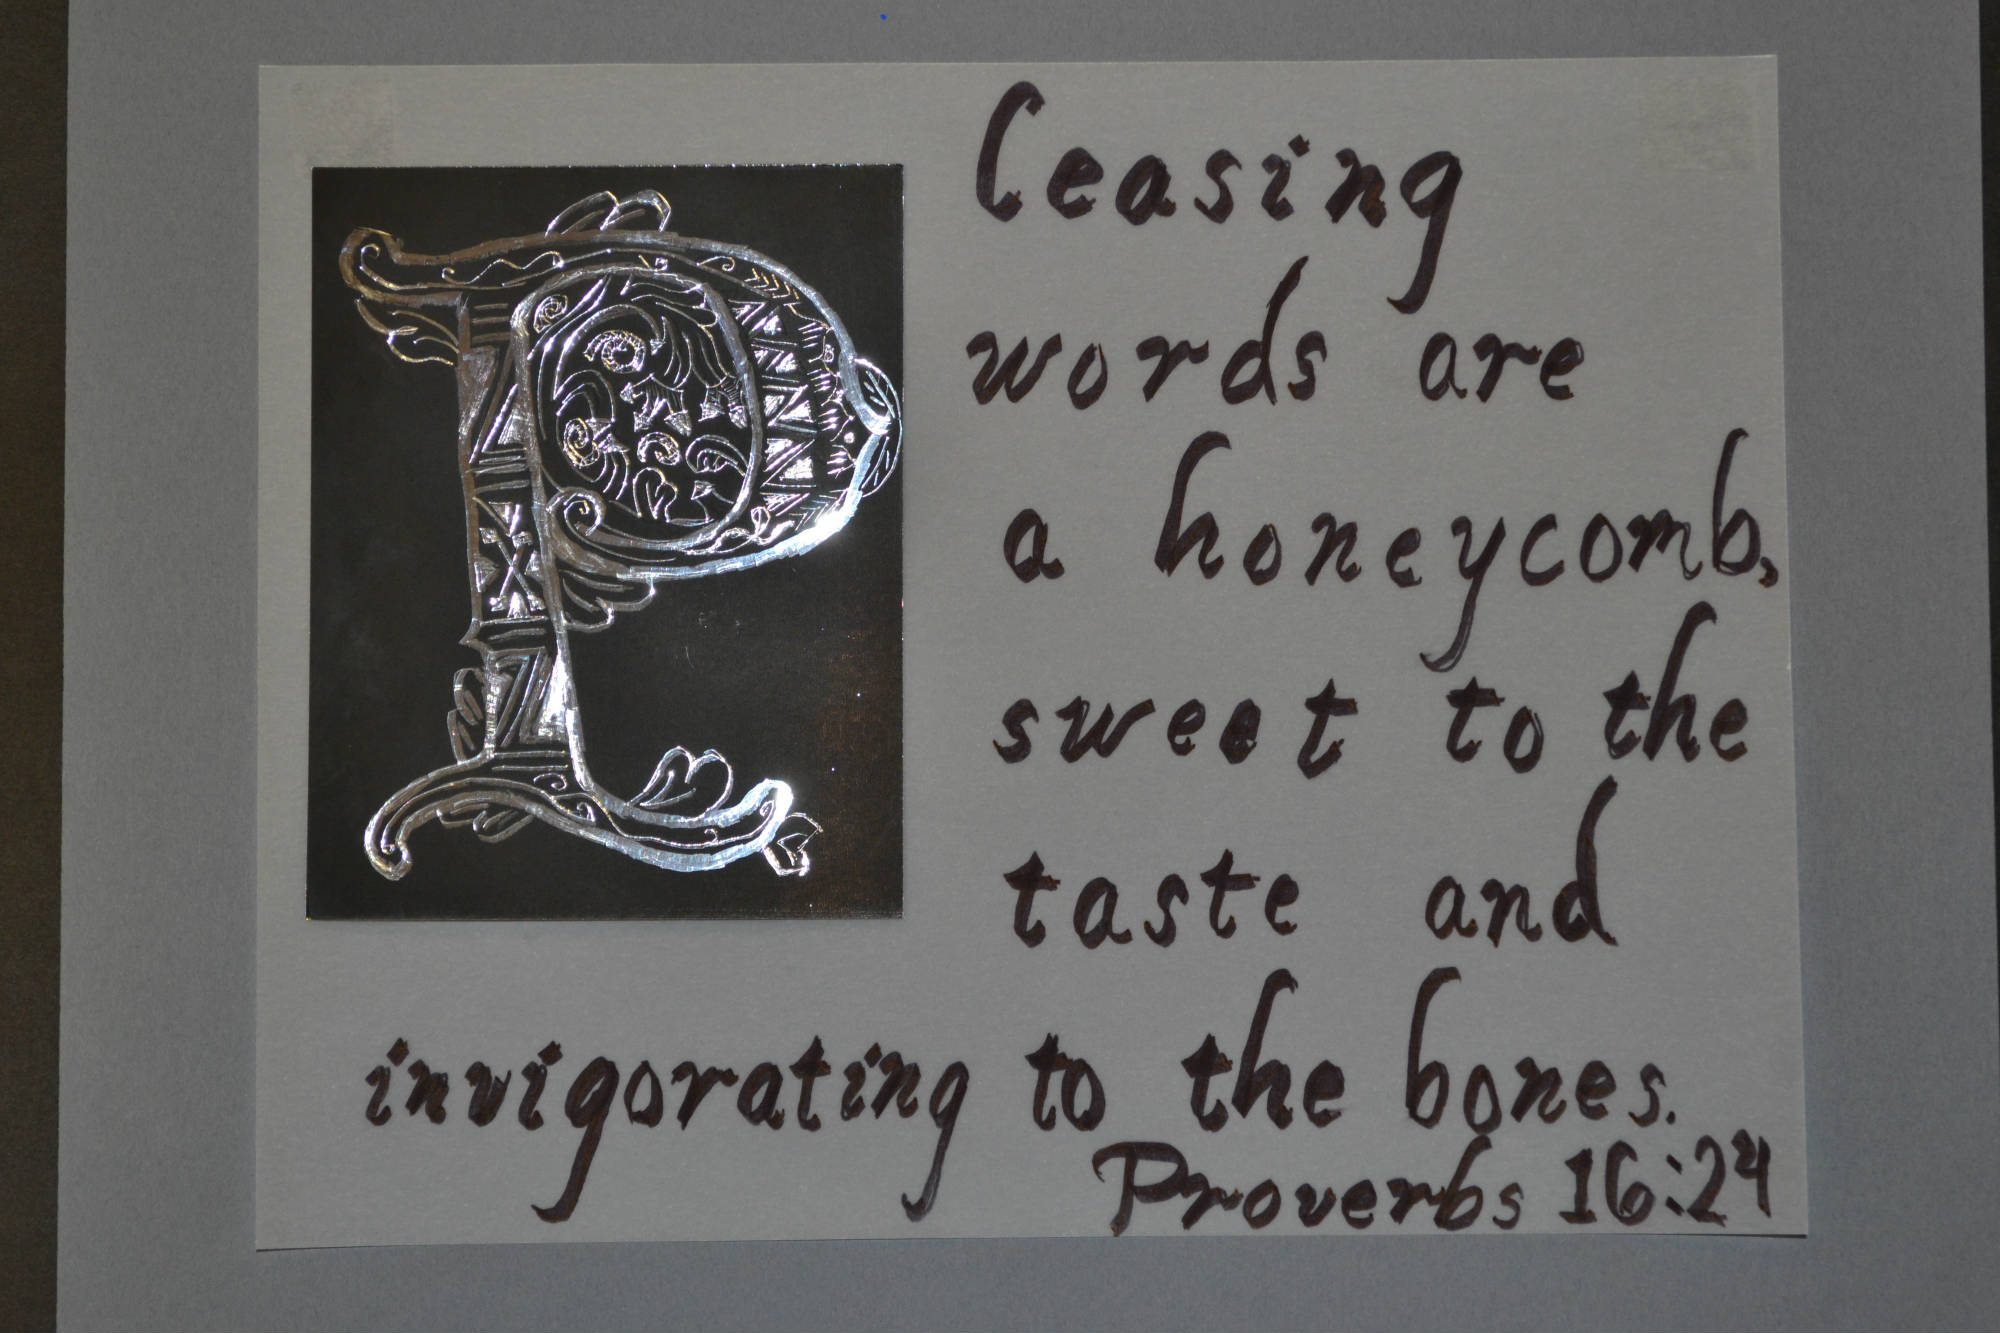 Pleasing
words are
a honeycomb,
sweet to the
taste and
invigorating to the bones.
Proverbs 16:24